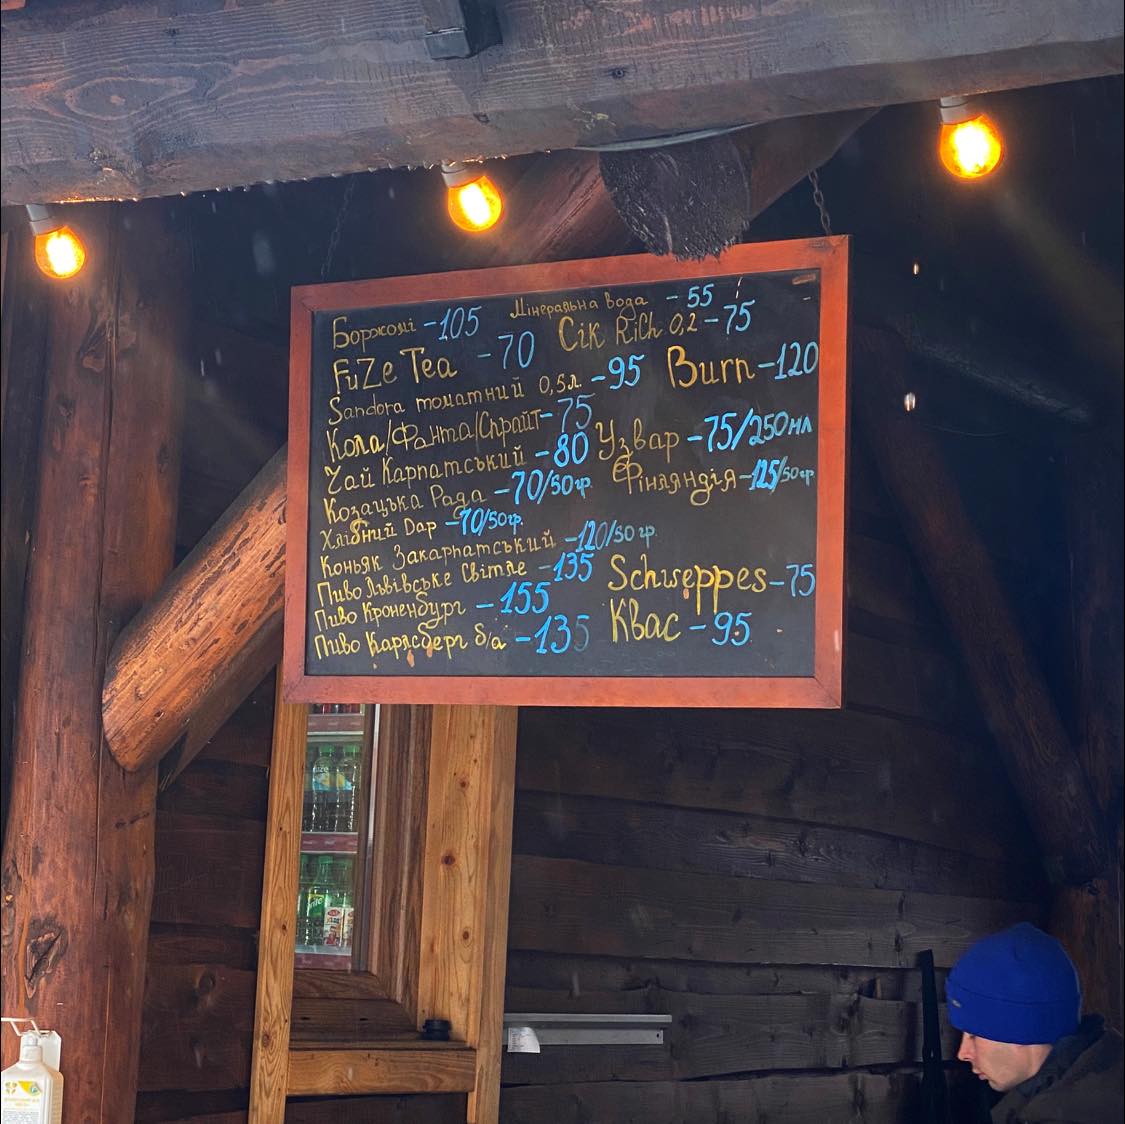 Мінеральна вода - 55
Боржомі - 105
Сік Rich 0,2 - 75
FuZe Tea - 70
Burn - 120
Sandora томатний 0,5л. - 95
Кола/Фанта/Спрайт - 75
Узвар - 75/250мл
Чай Карпатський - 80
Фінляндія - 125/50гр.
Козацька Рада - 70/50гр.
Хлібний Дар - 70/50гр.
Коньяк Закарпатський - 120/50гр.
Пиво Львівське Світле - 135
Schweppes - 75
Пиво Кроненбург - 155
Квас - 95
Пиво Карлсберг б/а - 135